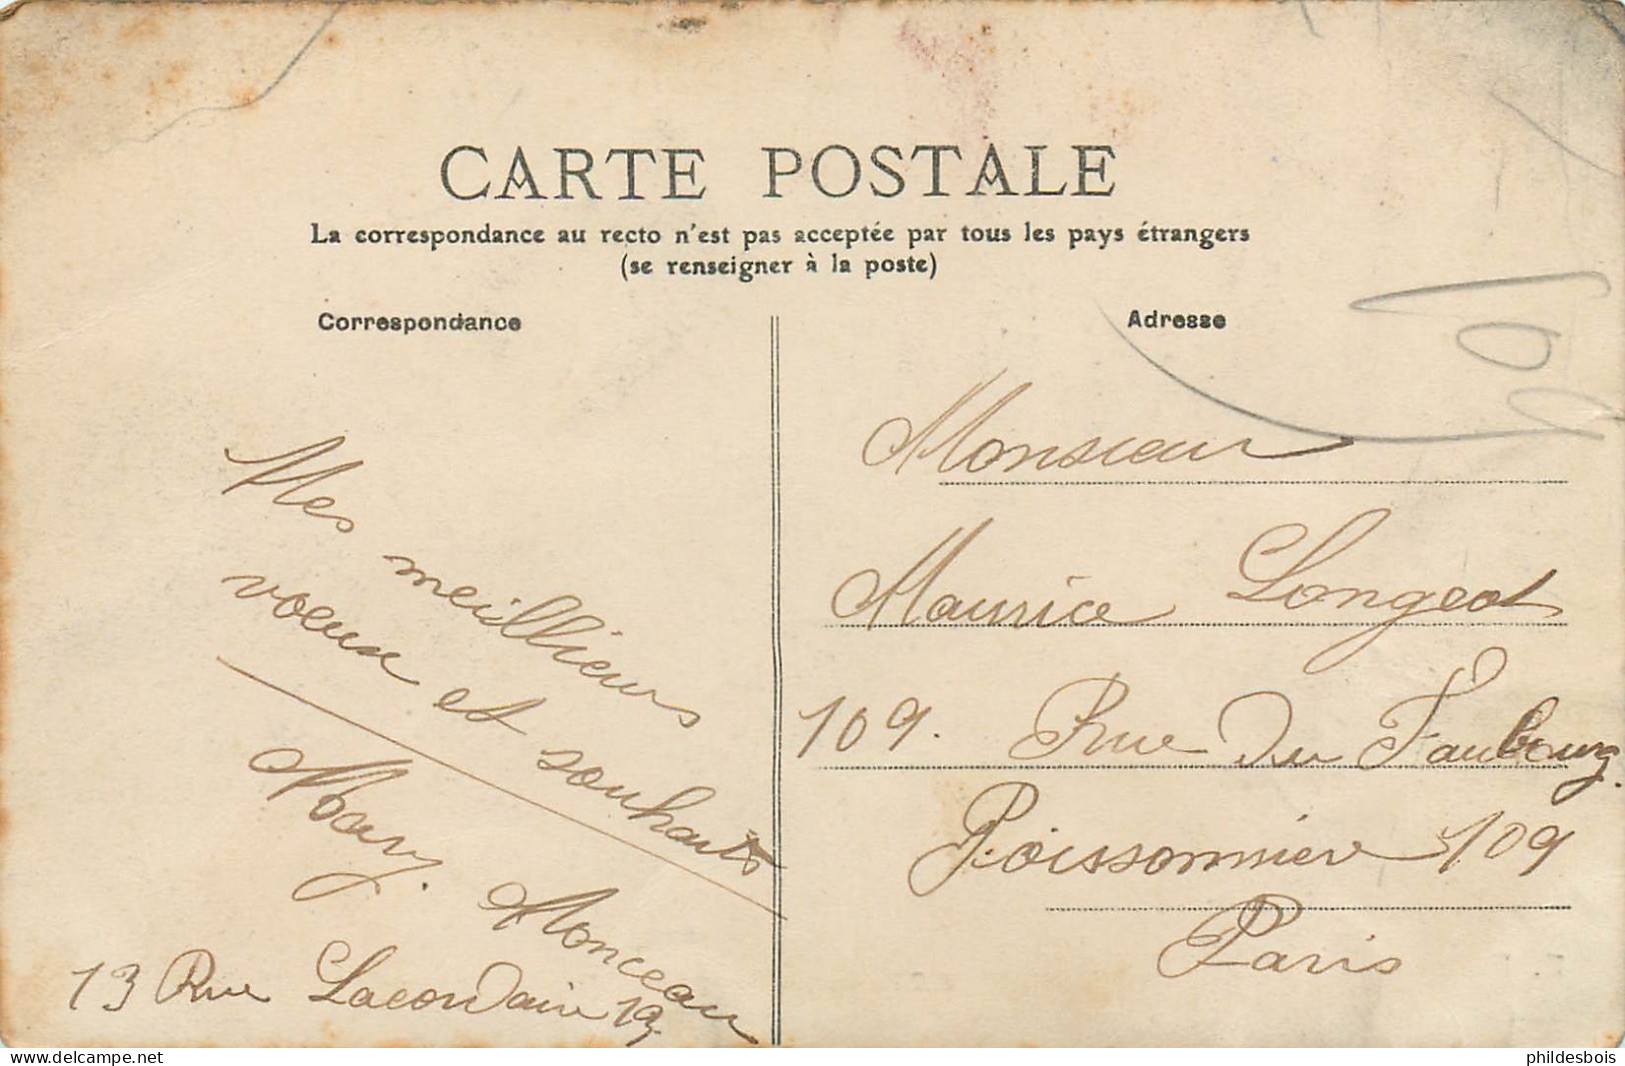 CARTE POSTALE
La correspondance au recto n'est pas acceptée par tous les pays étrangers
(se renseigner à la poste)
Correspondance
Adresse
109
Mes meillieurs
voeux et souhaits
Mary. Monceau
13 Rue Lacordaire 13.
Monsieur
Maurice Longeot
109. Rue du Faubourg.
Poissonnière 109
Paris
www.delcampe.net
phildesbois